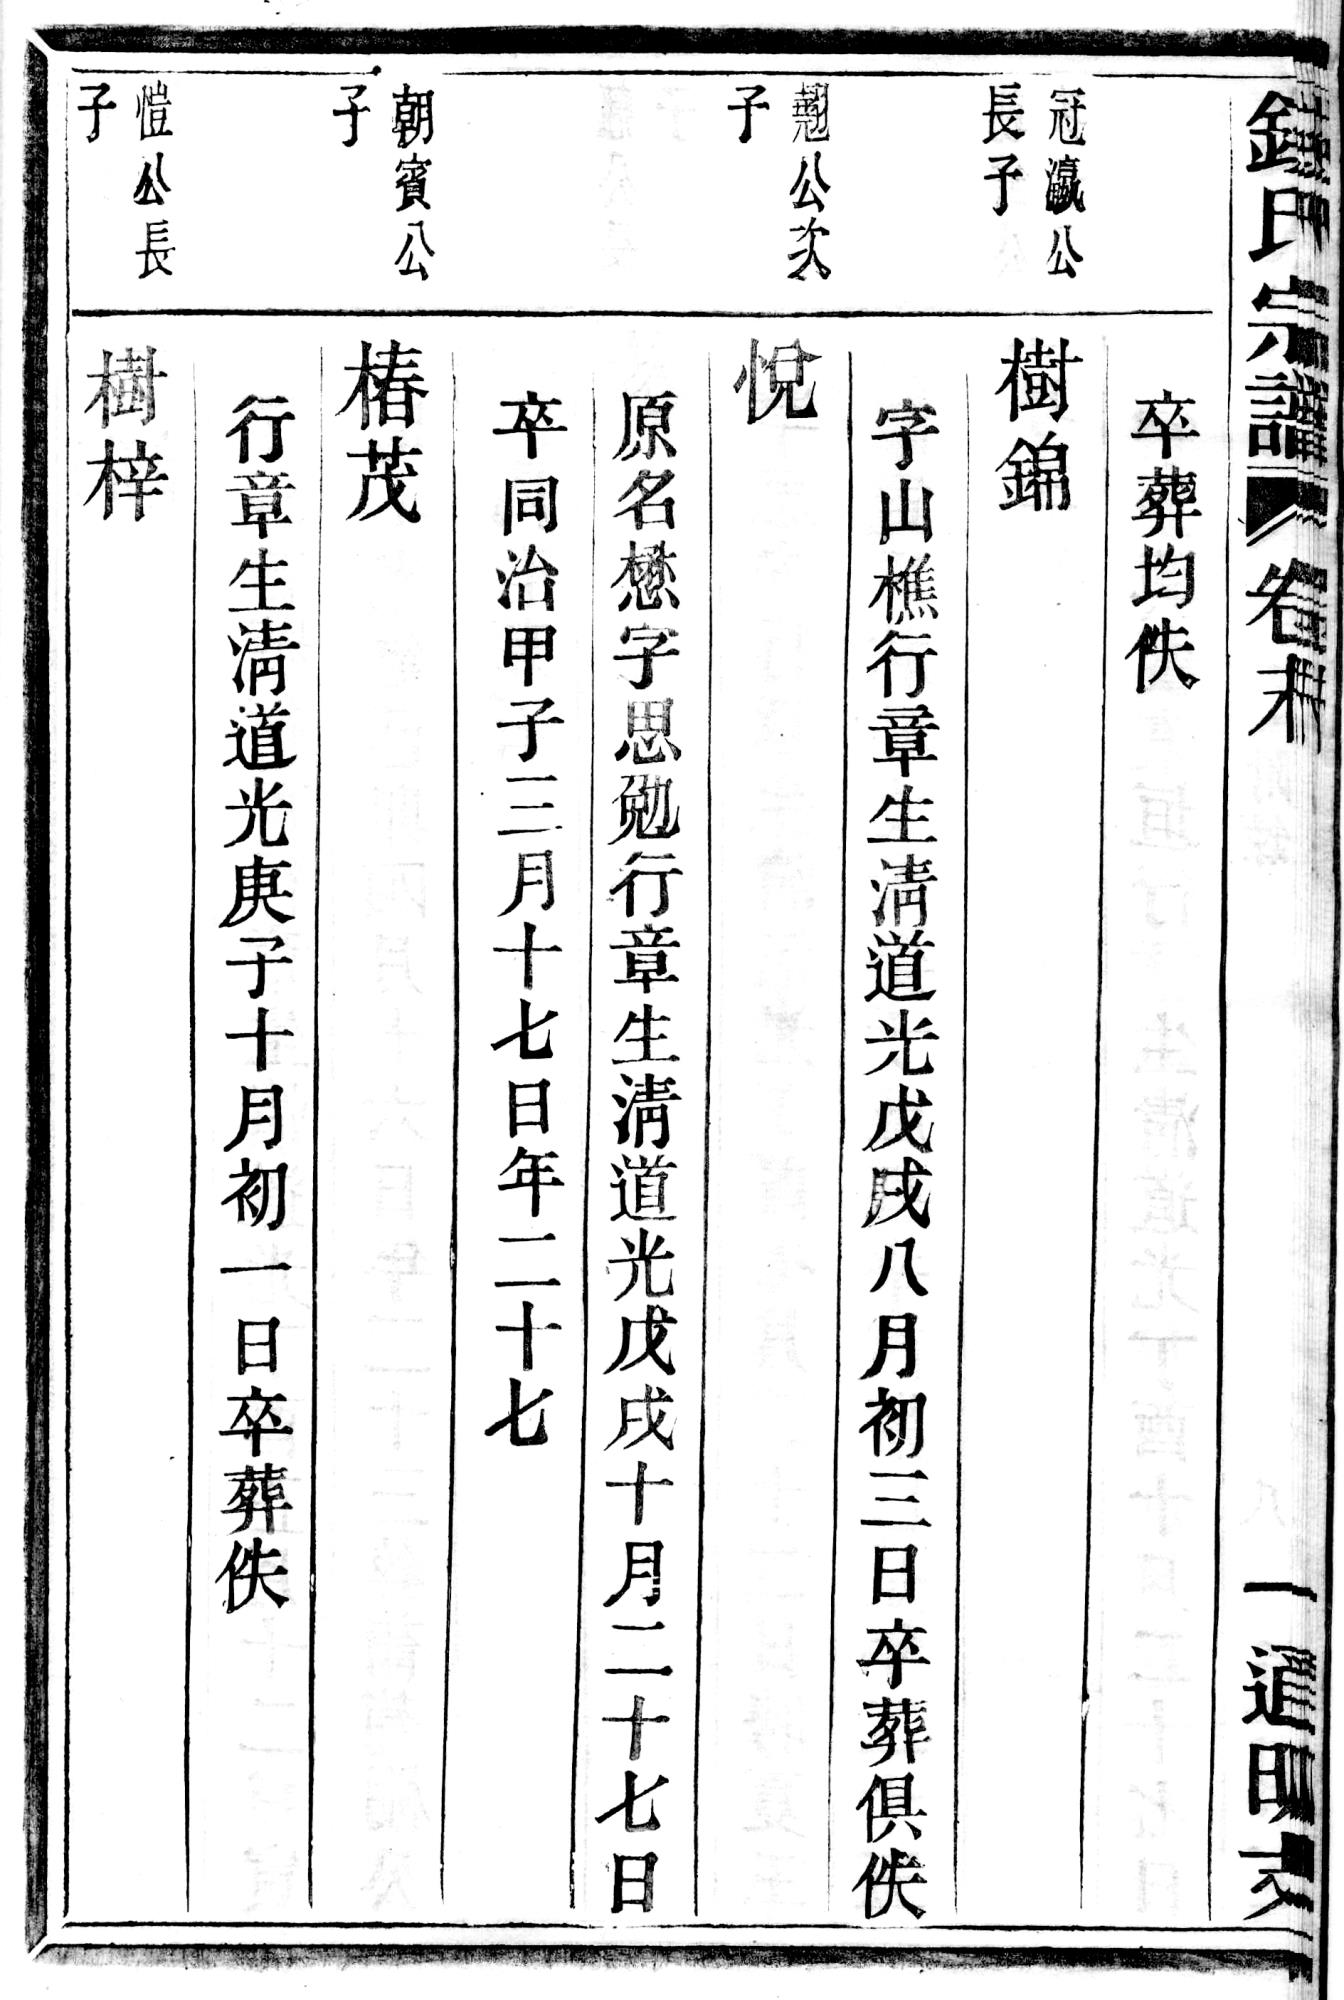 氏宗譜 卷末 一 道明支
卒葬均佚
冠瀛公
長子
樹錦
字山樵行章生淸道光戊戌八月初三日卒葬俱佚
翹公次
子
悅
原名懋字思勉行章生淸道光戊戌十月二十七日
卒同治甲子三月十七日年二十七
朝賓公
子
椿茂
行章生淸道光庚子十月初一日卒葬佚
愷公長
子
樹梓